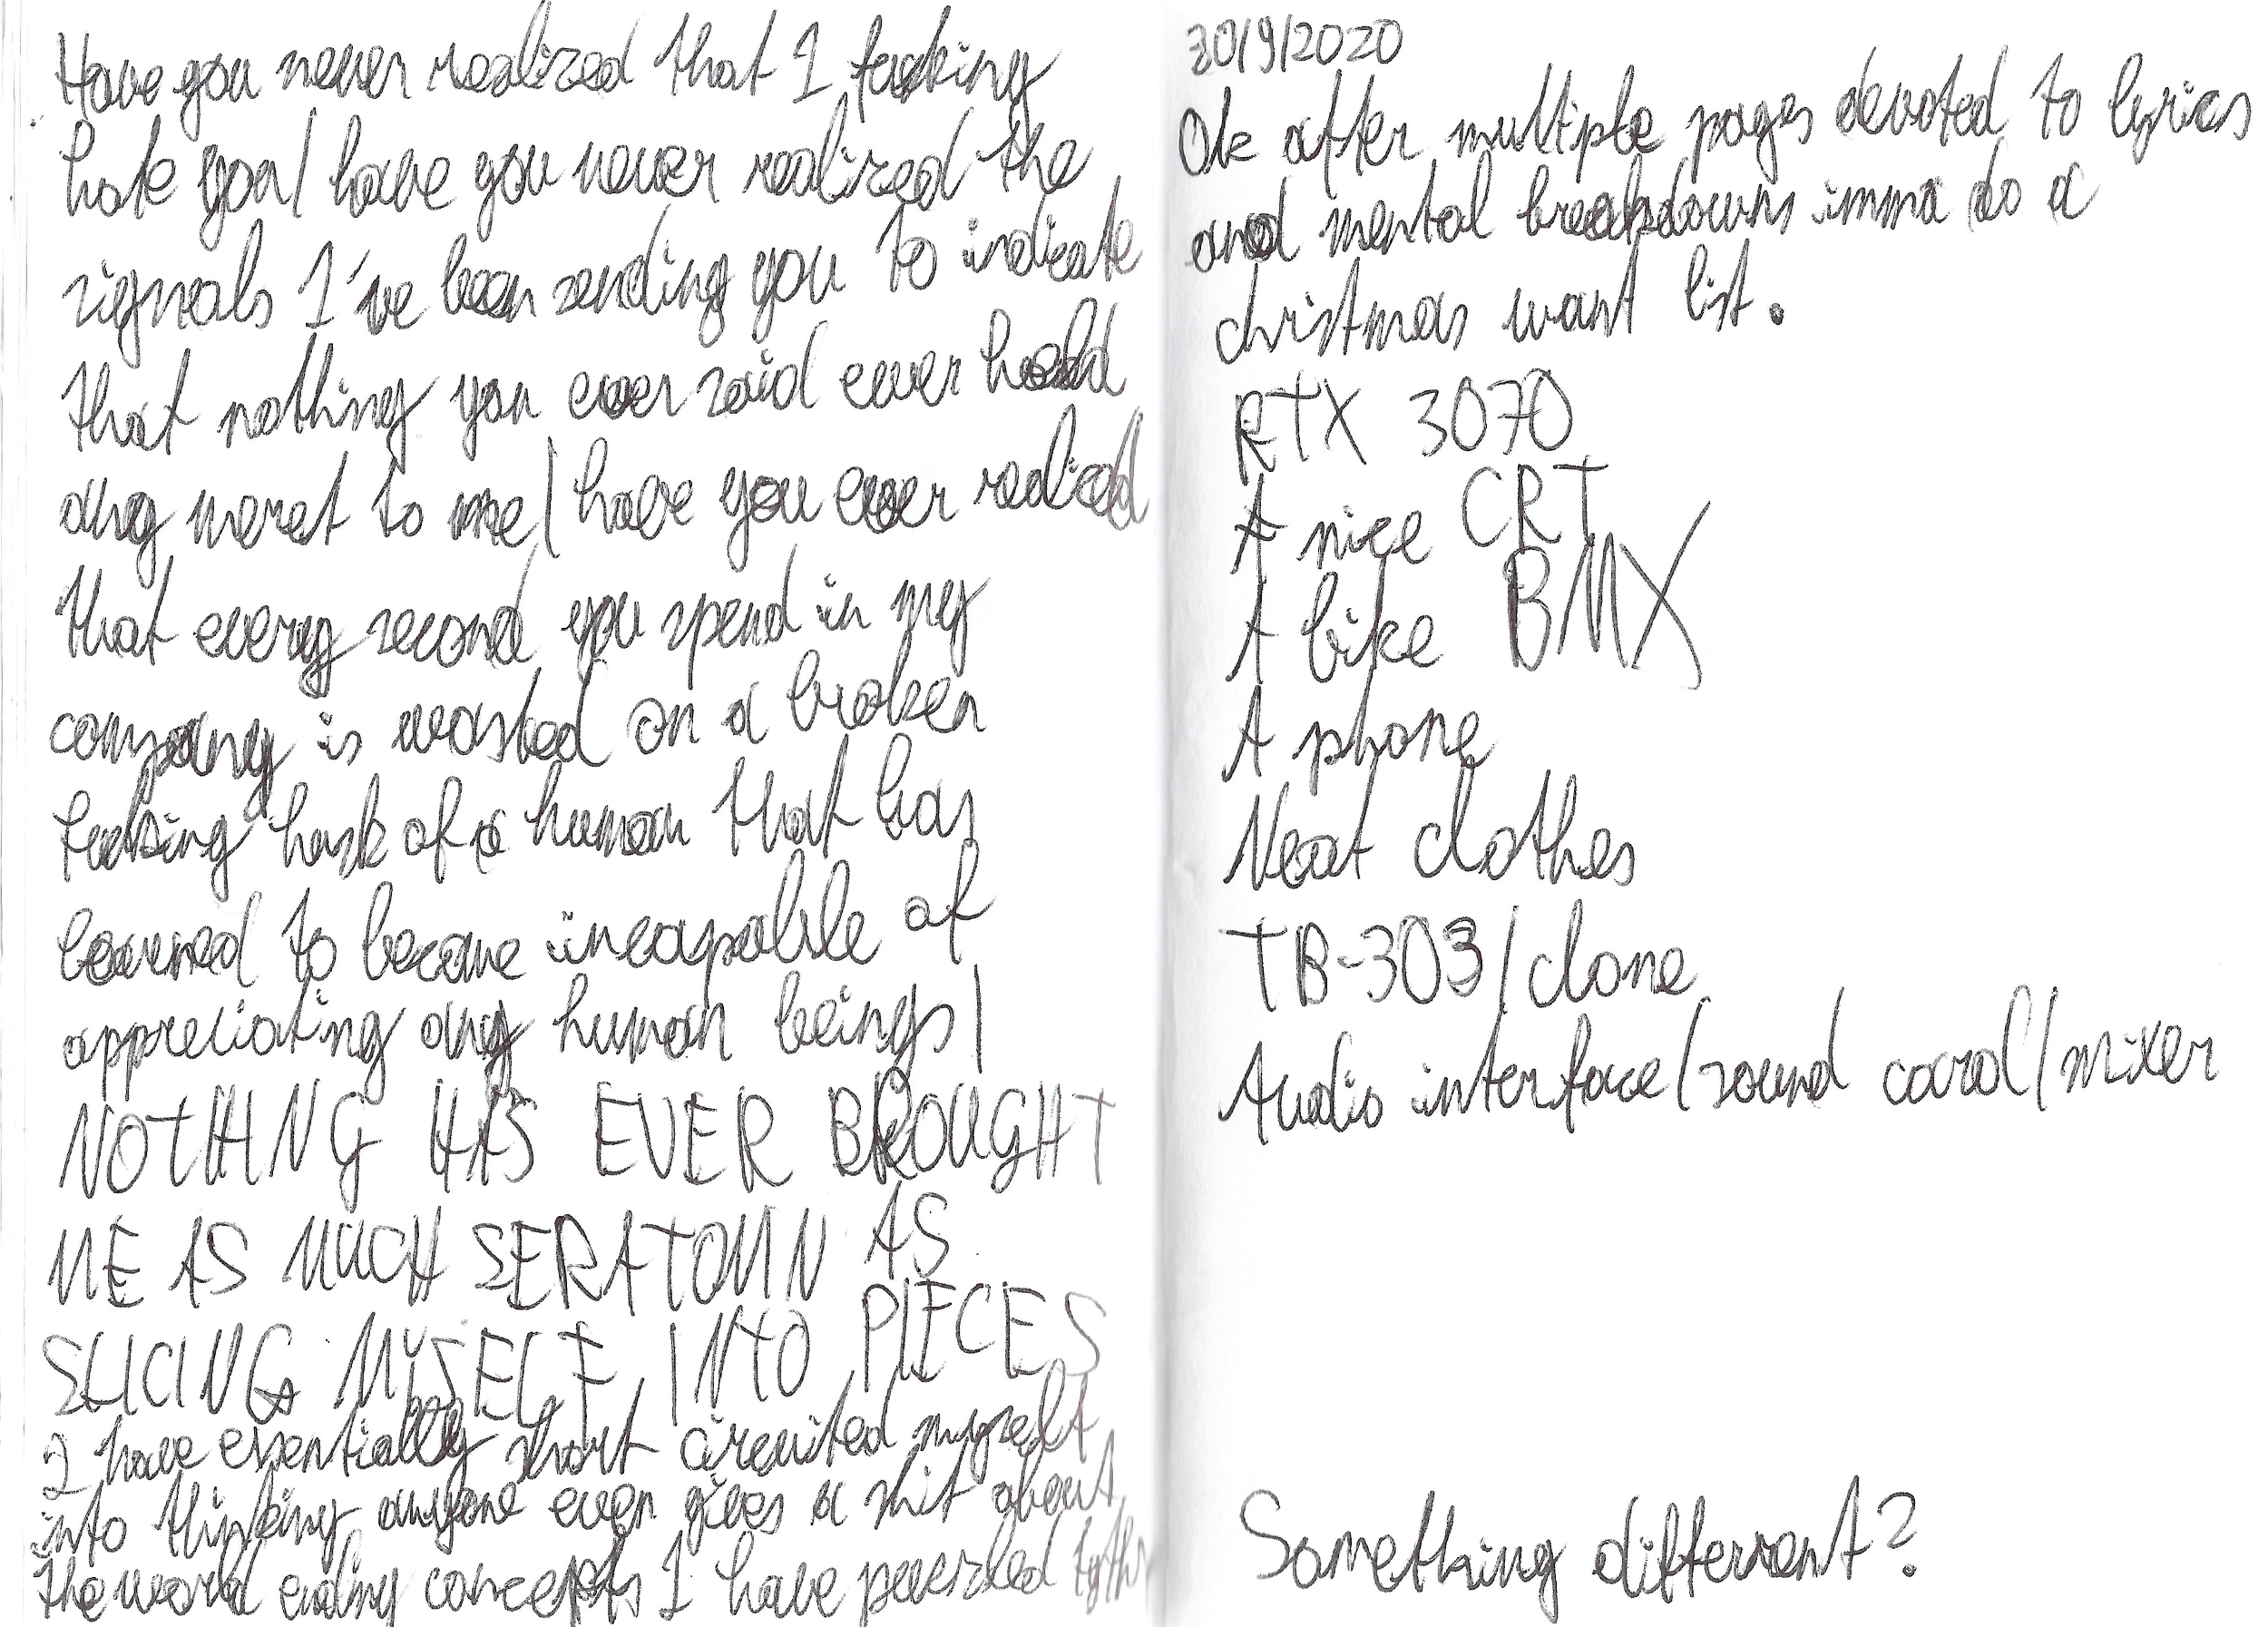 Have you never realized that I fucking
hate you/ have you never realized the
signals I've been sending you to indicate
that nothing you ever said ever held
any meret to me/ have you ever realized
that every second you spend in my
company is wasted on a broken
fucking husk of a human that has
learned to become incapable of
appreciating any human beings/
NOTHING HAS EVER BROUGHT
ME AS MUCH SERATONIN AS
SLICING MYSELF INTO PIECES
I have essentially short circuited myself
into thinking anyone even gives a shit about
the world ending concepts I have puzzled
30/9/2020
Ok after multiple pages devoted to lyrics
and mental breakdowns imma do a
christmas want list.
RTX 3070
A nice CRT
A bike BMX
A phone
Neat clothes
TB-303/clone
Audio interface/sound card/mixer
Something different?